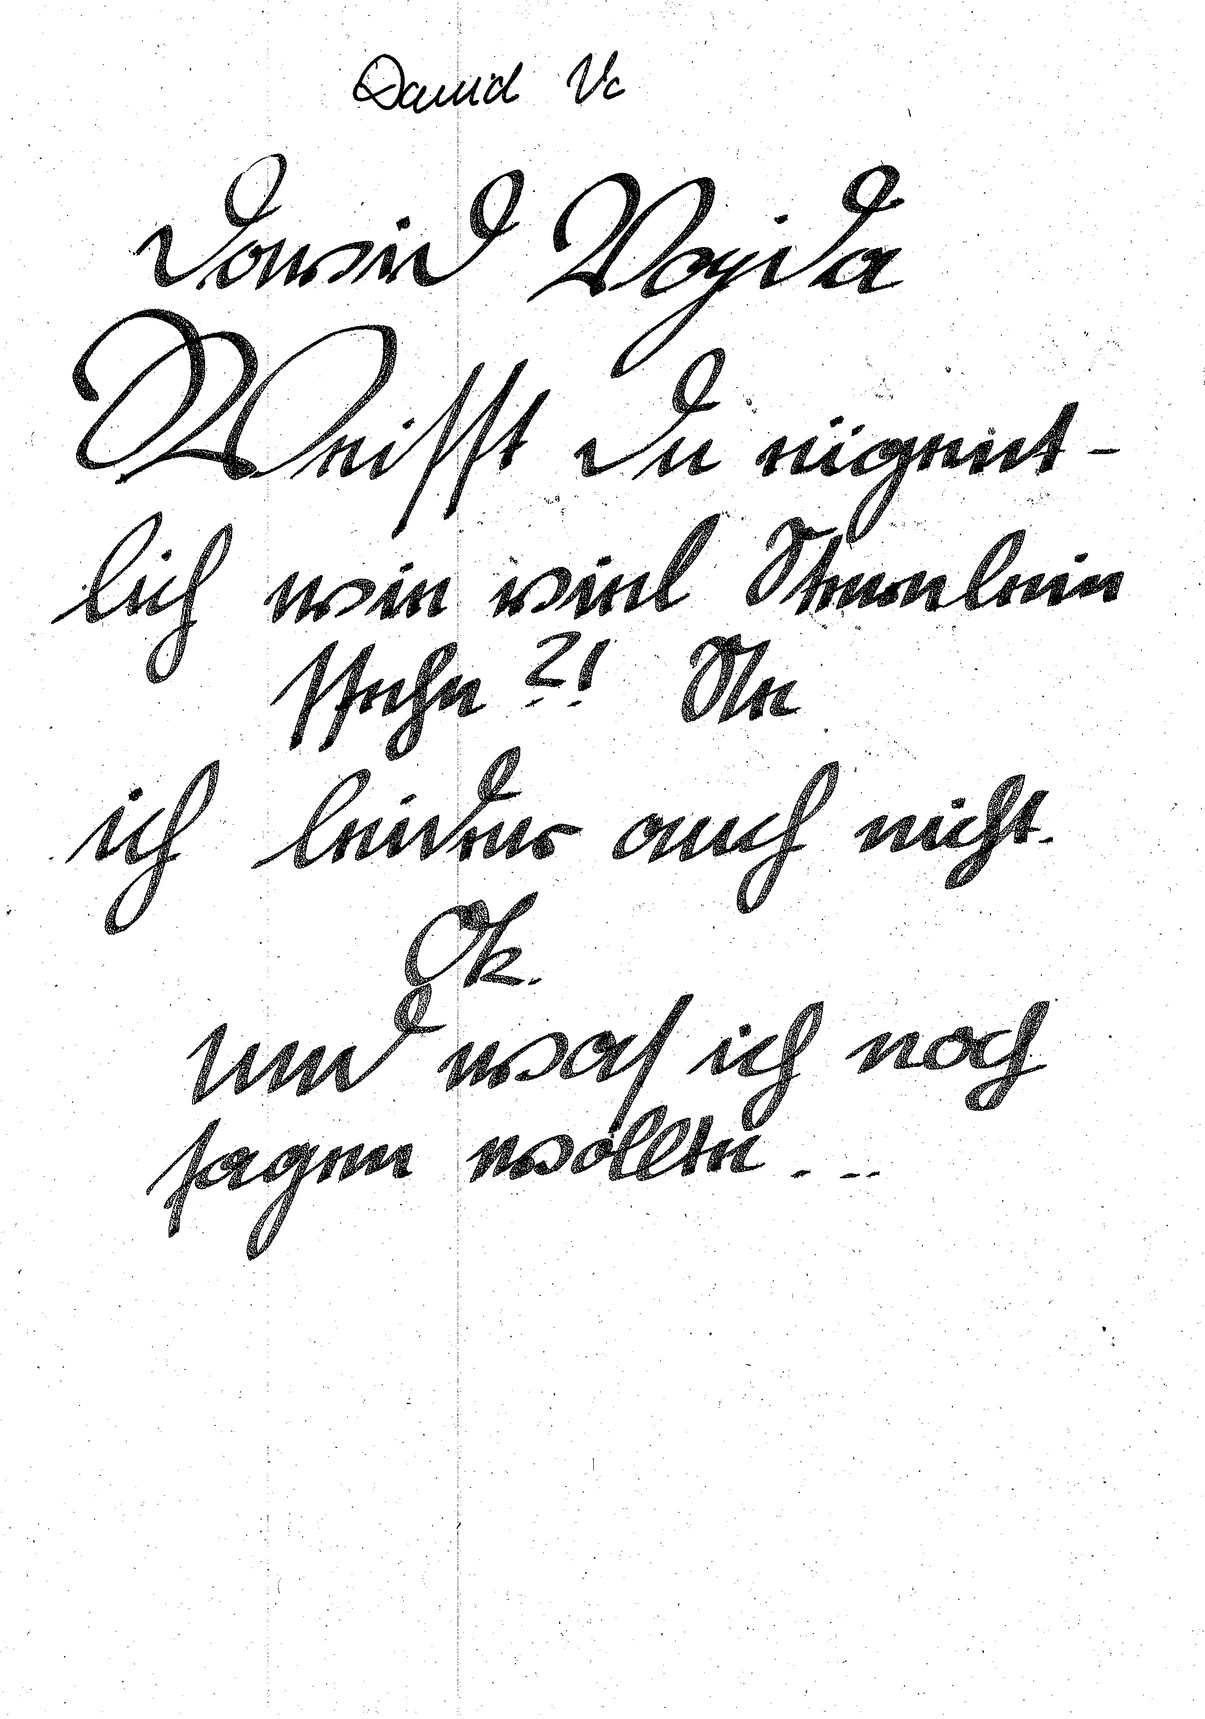 David Vc
David Vojda
Weisst du eigent-
lich wie viel Sternlein
stehn ?! Ne
ich leider auch nicht.
Ok.
Und was ich noch
sagen wollte . . .